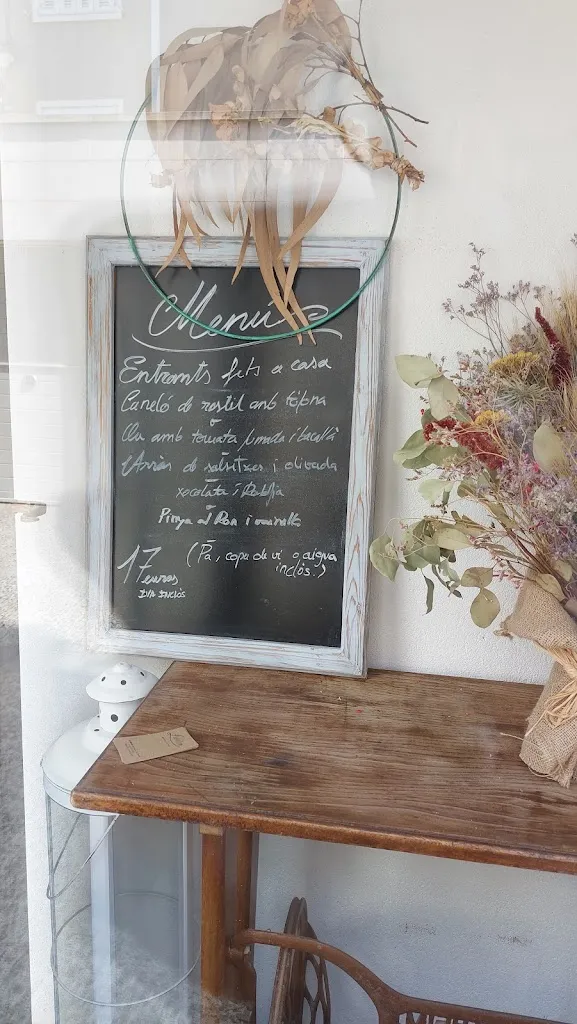 Menú
Entrants fets a casa
Caneló de rostit amb tòfona
Ou amb tomata fumada i bacallà
Arròs de salsitxes i olivada
xocolata i
Pinya al Ron i vainilla
17 euros
IVA INCLÒS
(Pa, copa de vi o aigua
inclòs.)